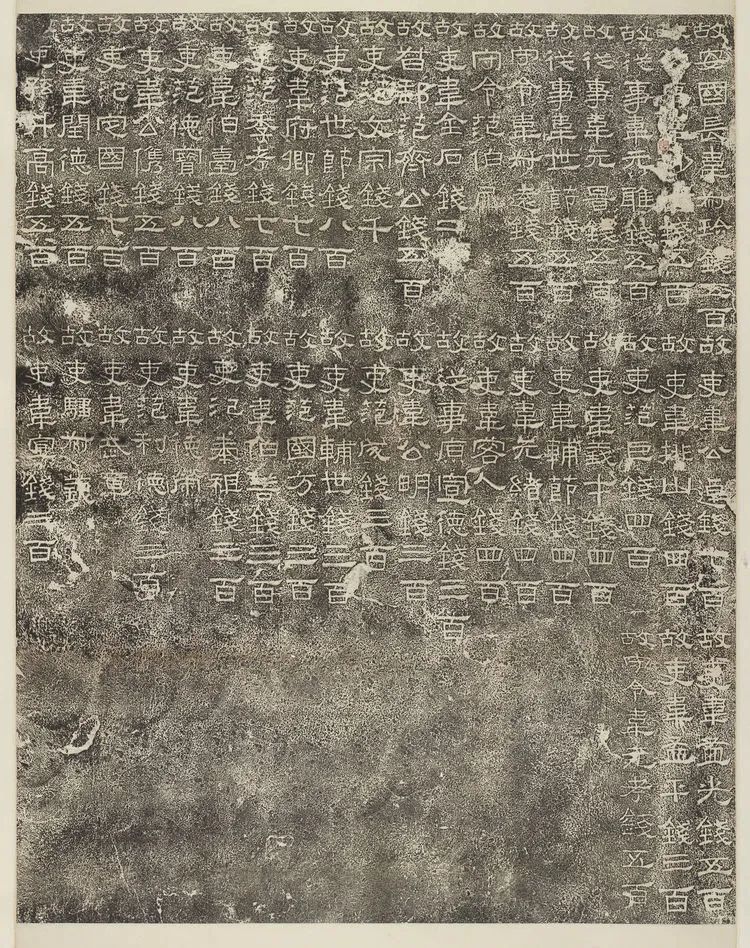 故安國長韋叔珍錢五百
故從事錢五百
故從事韋元雅錢五百
故從事韋元景錢五百
故從事韋世節錢五百
故守令韋叔遠錢五百
故守令范伯犀
故吏韋金石錢二
故督郵范齊公錢五百
故吏范文宗錢千
故吏范世節錢八百
故吏韋府卿錢七百
故吏范季考錢七百
故吏韋伯臺錢八百
故吏范德寶錢八百
故吏韋公僬錢五百
故吏范定國錢七百
故吏韋閏德錢五百
故吏孫升高錢五百
故吏韋公逴錢七百
故吏韋排山錢四百
故吏范巨錢四百
故吏韋義才錢四百
故吏韋輔節錢四百
故吏韋元緒錢四百
故吏韋客人錢四百
故從事原宣德錢三百
故吏韋公明錢三百
故吏范成錢三百
故吏韋輔世錢三百
故吏范國方錢三百
故吏韋伯善錢三百
故吏范奉祖錢三百
故吏韋德榮
故吏范利德錢三百
故吏韋武章
故吏騶叔義
故吏韋宣錢三百
故吏韋孟光錢五百
故吏韋孟平錢三百
故守令韋元考錢五百